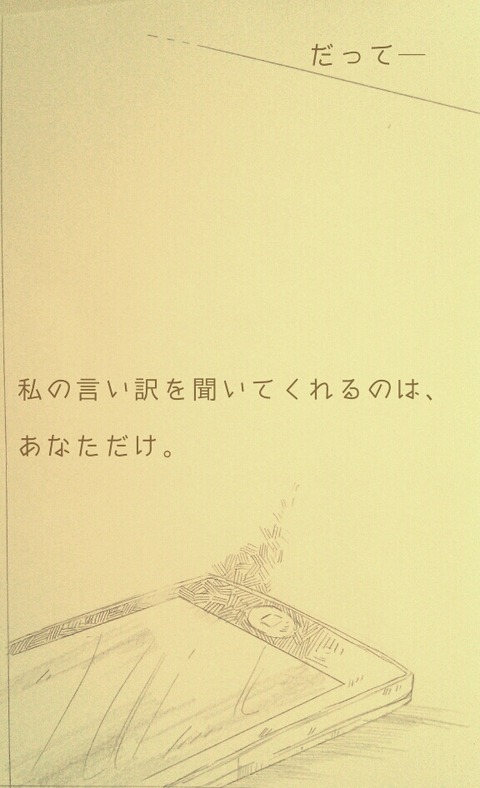 だって―
私の言い訳を聞いてくれるのは、
あなただけ。